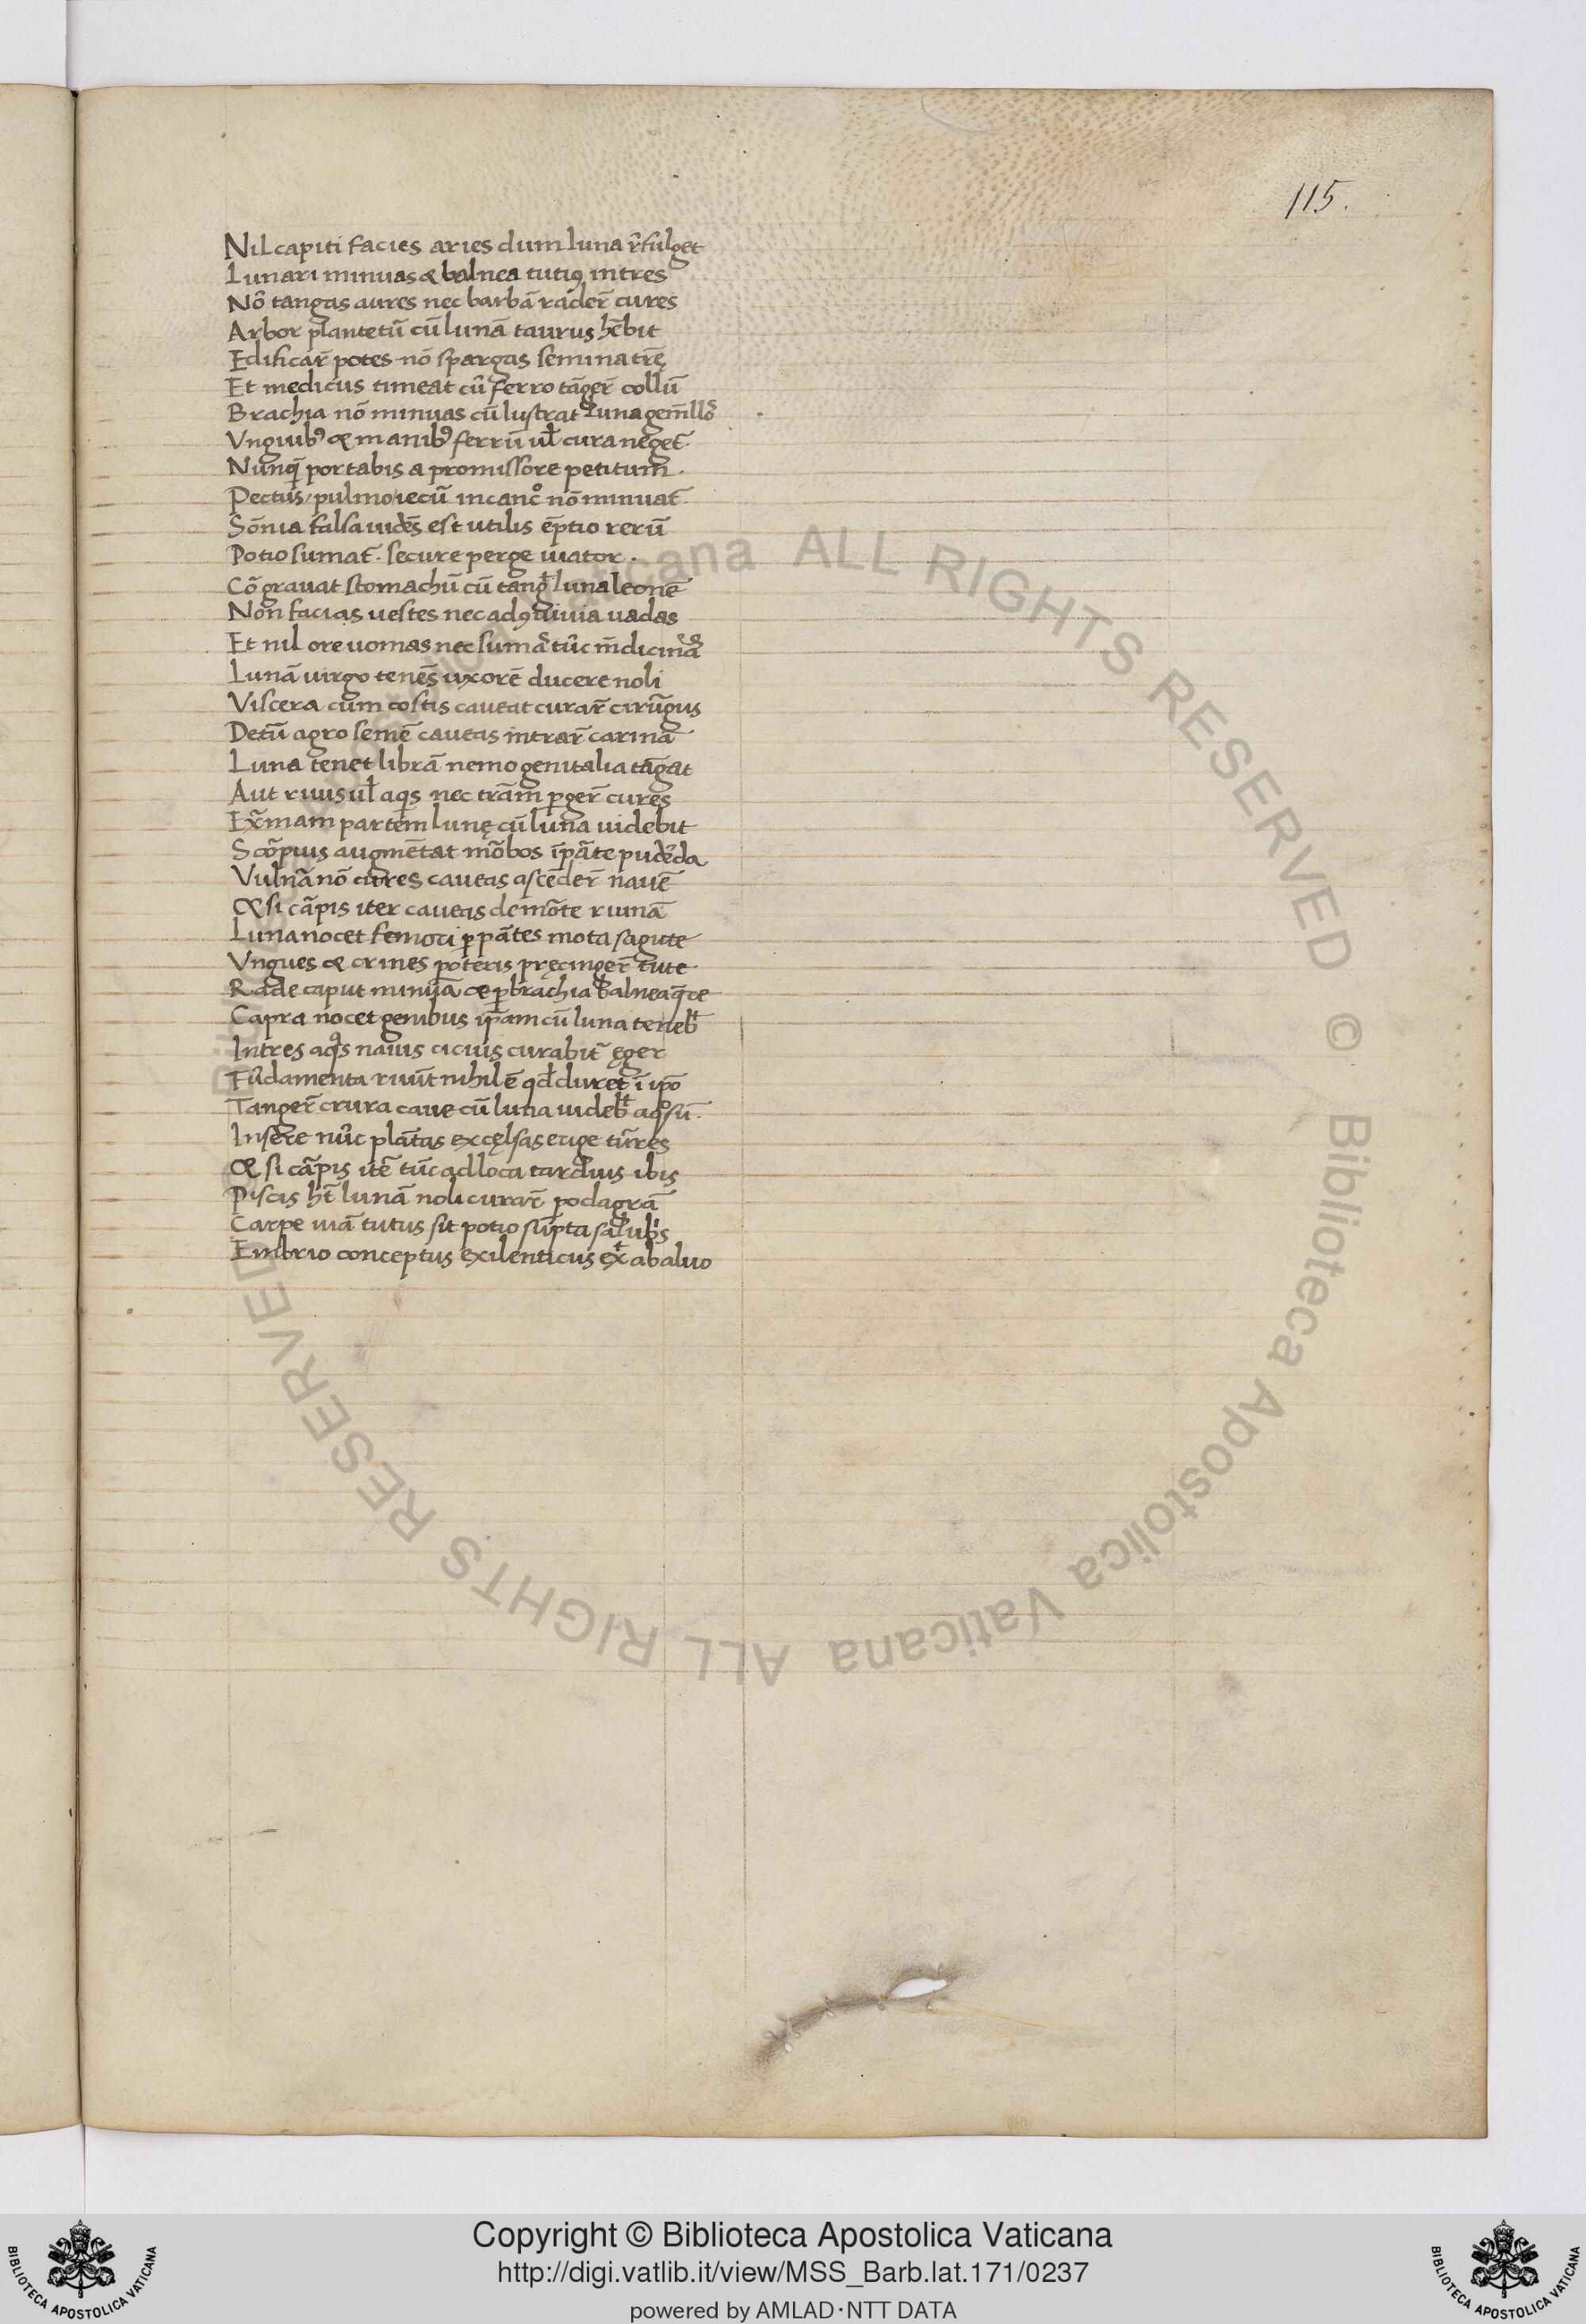 115.
Nil capiti facies aries dum luna r̄fulget
Lunari minuas & balnea tutiꝰ intres
Nō tangas aures nec barbā rader̄ cures
Arbor plantetū cū lunā taurus hēbit
Edificar̄ potes nō spargas semina trę̄
Et medicus timeat cū ferro tāger̄ collū
Brachia nō minuas cū lustrat luna gem̄llos
Vnguibꝰ & manibꝰ ferrū ul̄ cura neget̄.
Nunq̄ portabis a promissore petitum.
Pectus / pulmo iecū in canco nō minuat̄
Sōnia falsa uidēs est utilis ēptio rerū
Potio sumat̄. secure perge uiator.
Cō grauat stomachū cū tanḡ luna leonē
Non facias uestes nec ad ꝯuiuia uadas
Et nil ore uomas nec sumas tūc m̄dicinā
Lunā uirgo tenēs uxorē ducere noli
Viscera cum costis caueat curar̄ cirūgus
Detū agro semē caueas intrar̄ carinā
Luna tenet librā nemo genitalia tāgat
Aut riuus ul̄ aqis nec trām ꝑger̄ cures
Ex̄mam partem lunę cū luna uidebit
Scōpius augmētat mōbos ī pāte pudēda
Vulnā nō cures caueas ascēder̄ nauē
& si cāpis iter caueas de mōte ruinā
Luna nocet femori ꝑ pātes mota sagitte
Vngues & crines poteris pręcinger̄ tute
Rade caput minuā & ꝑ brachia balneaq̄ te
Capra nocet genibus ip̄am cū luna tenebt
Intres aqas nauis cicius curabit̄ ęger
Fūdamenta ruūt nihil ē qd̄ duret ī ip̄o
Tanger̄ crura caue cū luna uidebt aqosū.
Insere nūc plātas excęlsas erige tūres
& si cāpis itē tūc ad loca tardius ibis
Piscis ht̄ lunā noli curar̄ podagrā
Carpe uiā tutus sit potio sūpta salubis
Embrio conceptus exilenticus ext ab aluo
Copyright © Biblioteca Apostolica Vaticana
http://digi.vatlib.it/view/MSS_Barb.lat.171/0237
powered by AMLAD·NTT DATA
BIBLIOTECA APOSTOLICA VATICANA
BIBLIOTECA APOSTOLICA VATICANA
© Biblioteca Apostolica Vaticana ALL RIGHTS RESERVED
© Biblioteca Apostolica Vaticana ALL RIGHTS RESERVED